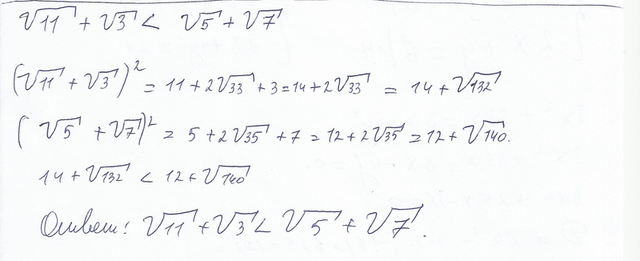 √11 + √3 < √5 + √7
(√11 + √3)² = 11 + 2√33 + 3 = 14 + 2√33 = 14 + √132
(√5 + √7)² = 5 + 2√35 + 7 = 12 + 2√35 = 12 + √140.
14 + √132 < 12 + √140
Ответ: √11 + √3 < √5 + √7.